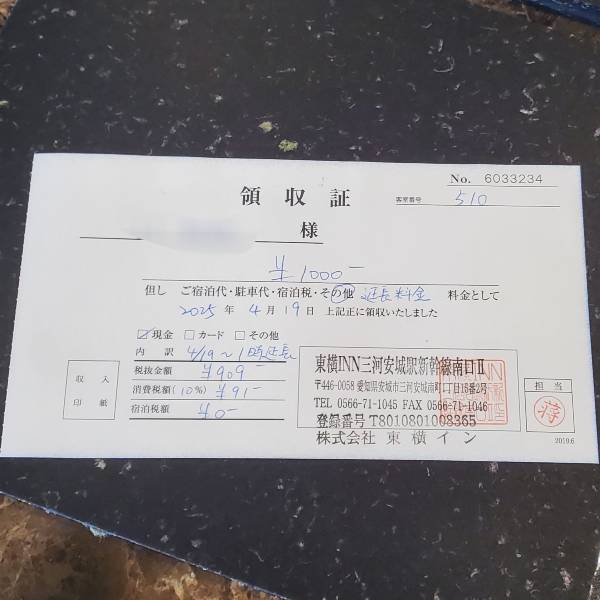 No. 6033234
領収証
客室番号 510
様
¥1000-
但し ご宿泊代・駐車代・宿泊税・その他 延長料金 料金として
2025年 4月19日 上記正に領収いたしました
☑現金 □カード □その他
内訳 4/19〜1時延長
税抜金額 ¥909-
消費税額(10%) ¥91-
宿泊税額 ¥0-
収入
印紙
東横INN三河安城駅新幹線南口Ⅱ
〒446-0058 愛知県安城市三河安城南町1丁目16番2号
TEL 0566-71-1045 FAX 0566-71-1046
登録番号 T8010801008365
株式会社 東横イン
担当
2019.6